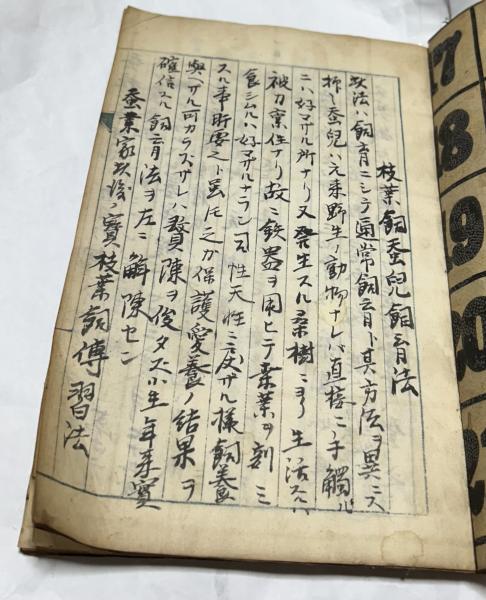 枝葉飼蚕兒飼育法
此法ハ飼育ニシテ通常飼育ト其方法ヲ異ニス
抑々蚕兒ハ元来野生ノ動物ナレバ直接ニ手觸ル
ニハ好マザル所ナリ又発生スル桑樹ニヨリ生活スル
被力蚕性ナリ故ニ鉄器ヲ用ヒテ桑葉ヲ刻ミ
食シムルハ好マザルナラン 性天性ニ反ザル様飼養
スル事肝要ト虽氏之カ保護愛養ノ結果ヲ
與ヘザル可カラズサレハ贅陳ヲ俟タズ小生年来實
確信スル飼育法ヲ左ニ解陳セン
蚕業家 ノ寶枝葉飼傳習法
17
18
19
20